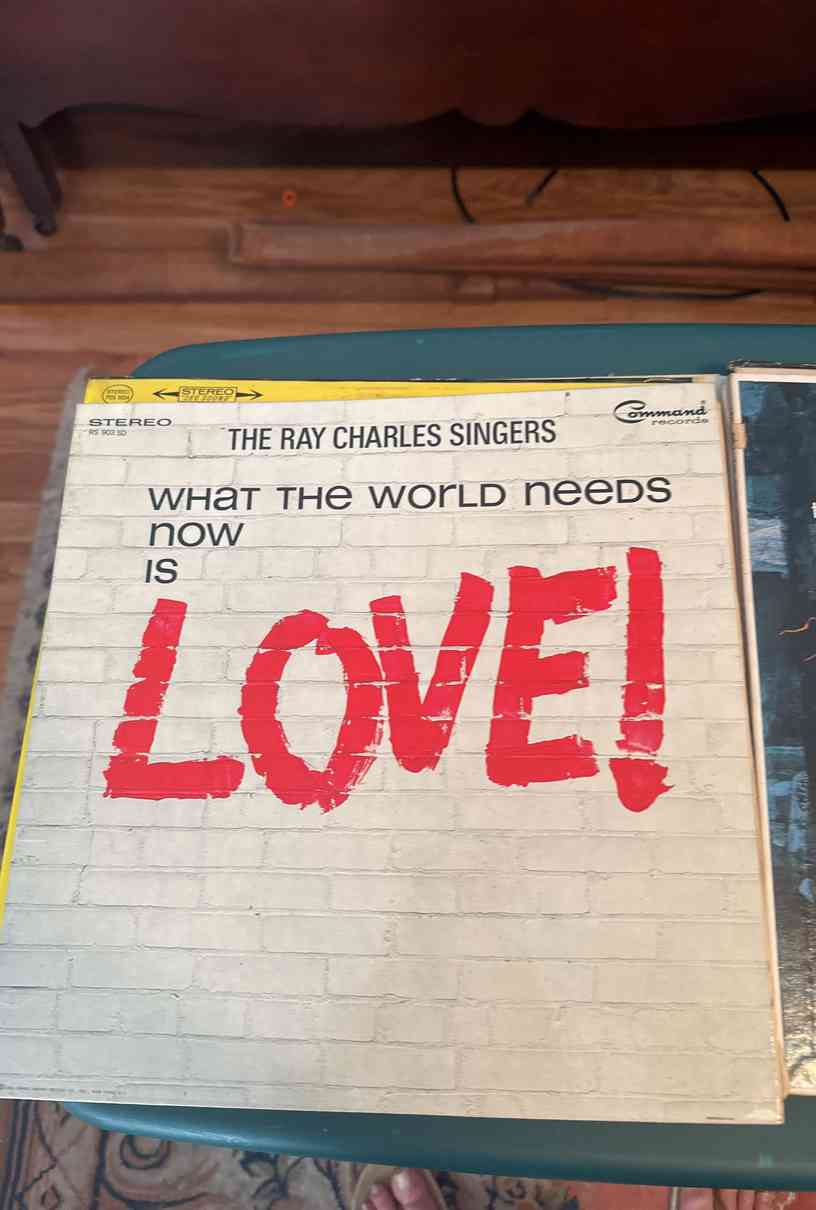 STEREO
STEREO
Command
records
STEREO
RS 903 SD
THE RAY CHARLES SINGERS
WHaT THe WOrLD neeDS
nOW
IS
LOVE!